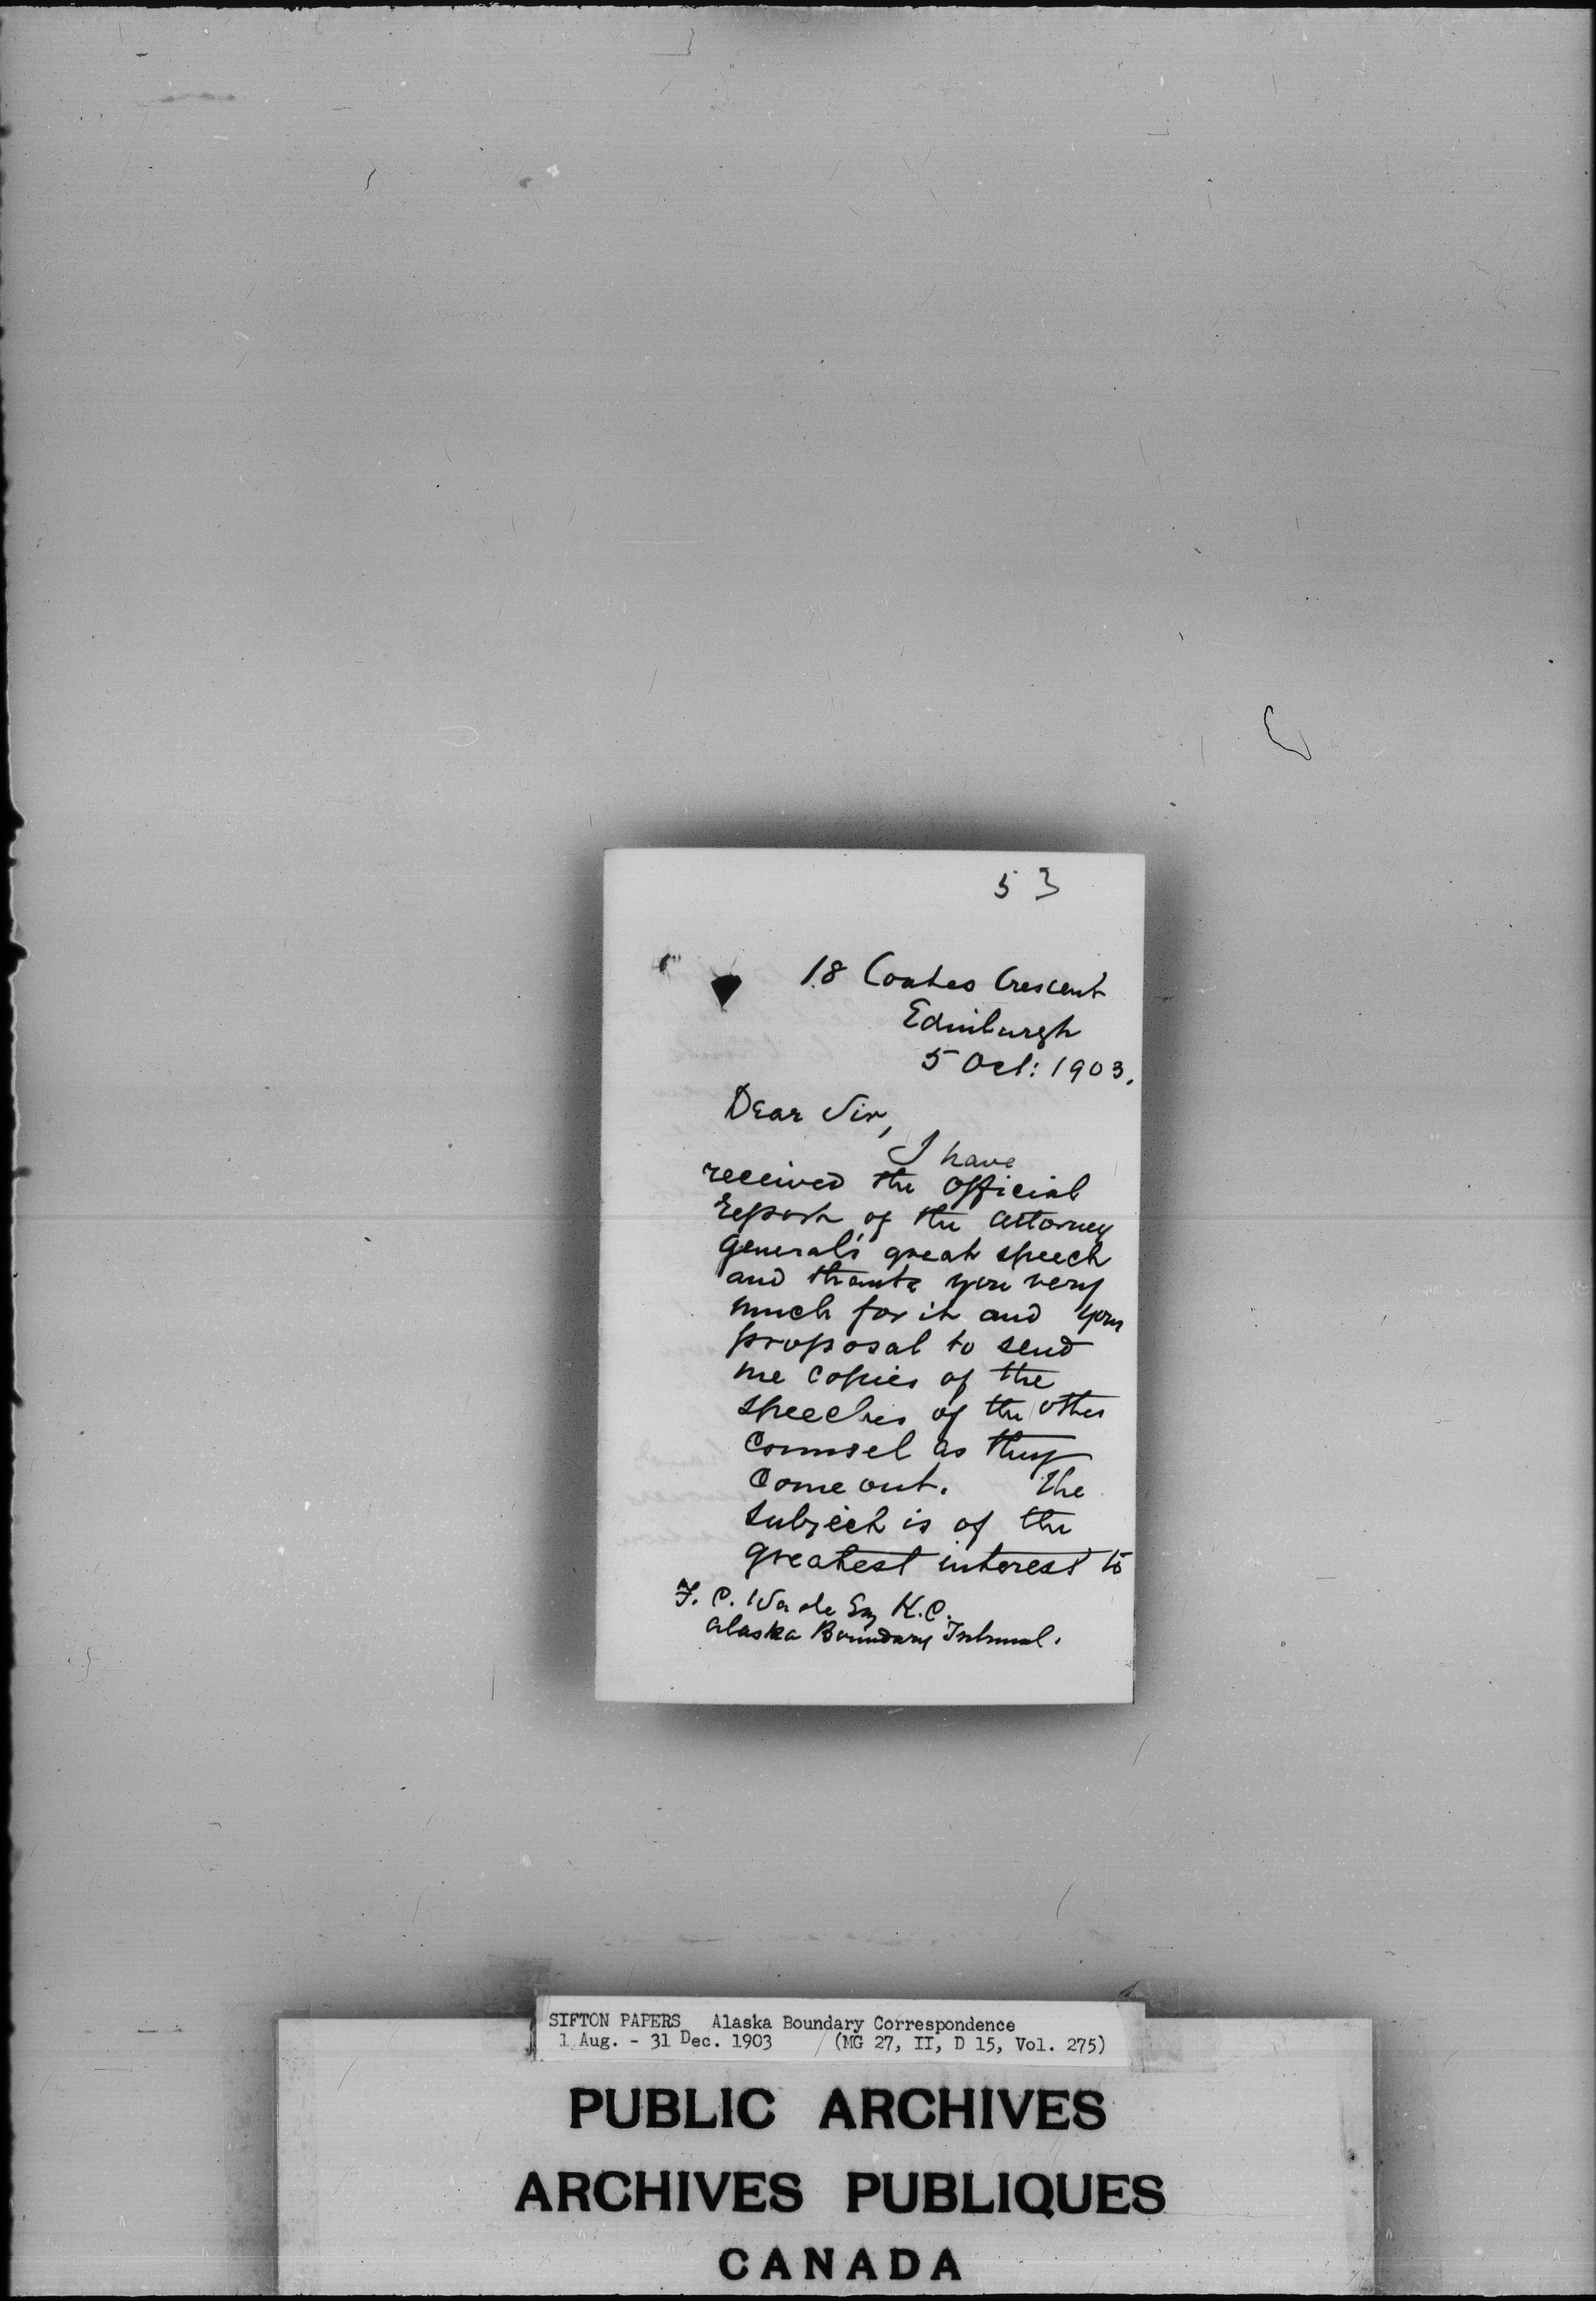 53
18 Coates Crescent
Edinburgh
5 Oct: 1903.
Dear Sir,
I have
received the official
report of the Attorney
General's great speech
and thank you very
much for it and your
proposal to send
me copies of the
speeches of the other
Counsel as they
come out. The
subject is of the
greatest interest to
F. C. Wade Esq K.C.
Alaska Boundary Tribunal.
SIFTON PAPERS Alaska Boundary Correspondence
1 Aug. - 31 Dec. 1903 (MG 27, II, D 15, Vol. 275)
PUBLIC ARCHIVES
ARCHIVES PUBLIQUES
CANADA